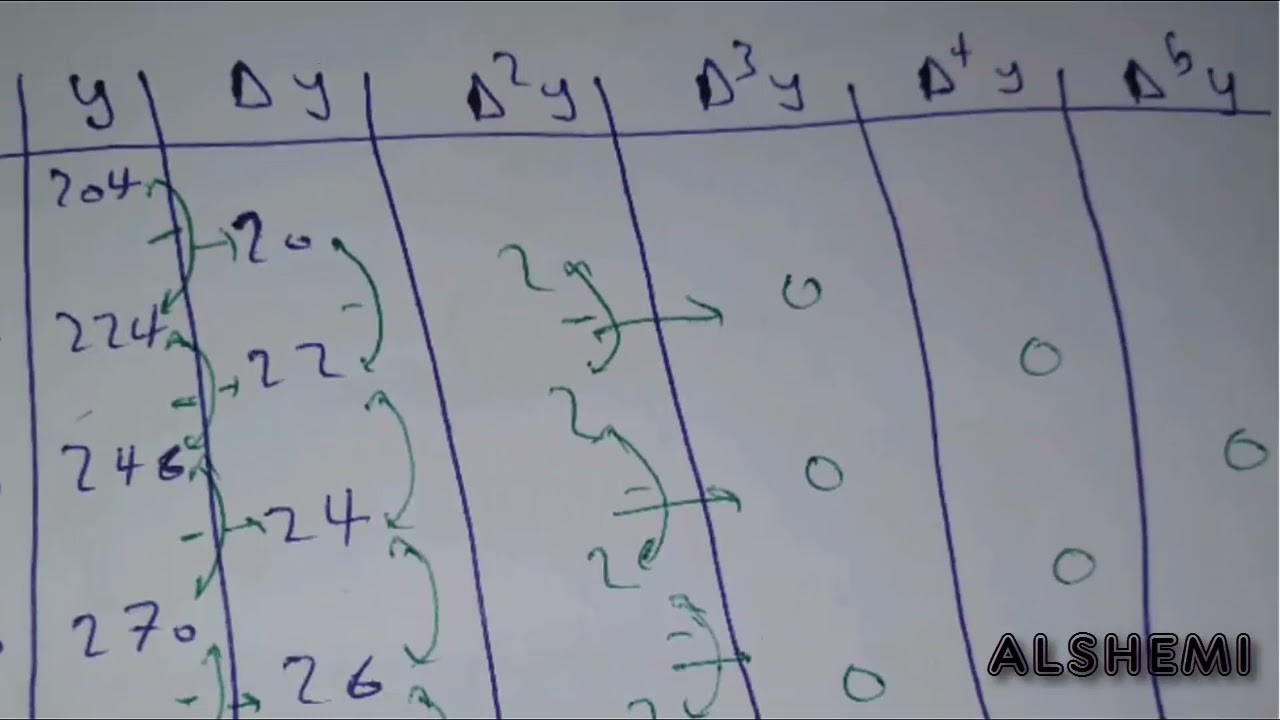 y Δy Δ²y Δ³y Δ⁴y Δ⁵y
204
20
2
0
224
22
0
2
246
0
0
24
2
0
270
26
0
2
ALSHEMI